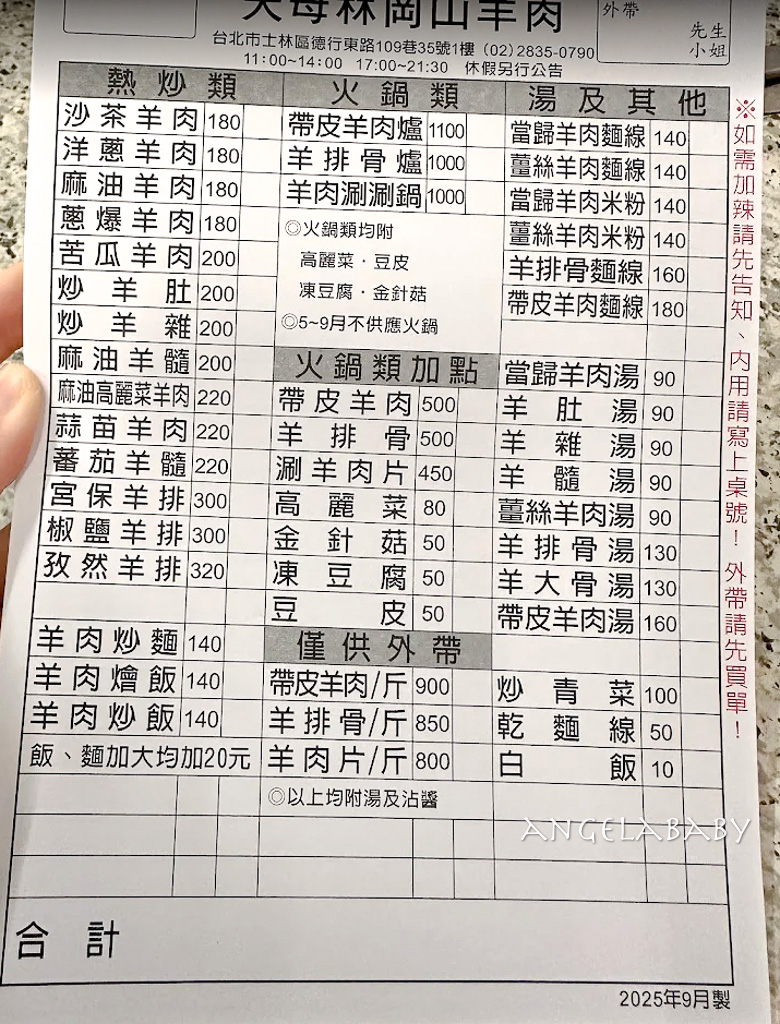 天母林岡山羊肉
外帶
先生
小姐
台北市士林區德行東路109巷35號1樓 (02)2835-0790
11:00~14:00 17:00~21:30 休假另行公告
熱炒類
沙茶羊肉 180
洋蔥羊肉 180
麻油羊肉 180
蔥爆羊肉 180
苦瓜羊肉 200
炒羊肚 200
炒羊雜 200
麻油羊髓 200
麻油高麗菜羊肉 220
蒜苗羊肉 220
蕃茄羊髓 220
宮保羊排 300
椒鹽羊排 300
孜然羊排 320
羊肉炒麵 140
羊肉燴飯 140
羊肉炒飯 140
飯、麵加大均加20元
火鍋類
帶皮羊肉爐 1100
羊排骨爐 1000
羊肉涮涮鍋 1000
◎火鍋類均附
高麗菜．豆皮
凍豆腐．金針菇
◎5~9月不供應火鍋
火鍋類加點
帶皮羊肉 500
羊排骨 500
涮羊肉片 450
高麗菜 80
金針菇 50
凍豆腐 50
豆皮 50
僅供外帶
帶皮羊肉/斤 900
羊排骨/斤 850
羊肉片/斤 800
◎以上均附湯及沾醬
湯及其他
當歸羊肉麵線 140
薑絲羊肉麵線 140
當歸羊肉米粉 140
薑絲羊肉米粉 140
羊排骨麵線 160
帶皮羊肉麵線 180
當歸羊肉湯 90
羊肚湯 90
羊雜湯 90
羊髓湯 90
薑絲羊肉湯 90
羊排骨湯 130
羊大骨湯 130
帶皮羊肉湯 160
炒青菜 100
乾麵線 50
白飯 10
※如需加辣請先告知、內用請寫上桌號！外帶請先買單！
ANGELABABY
合計
2025年9月製